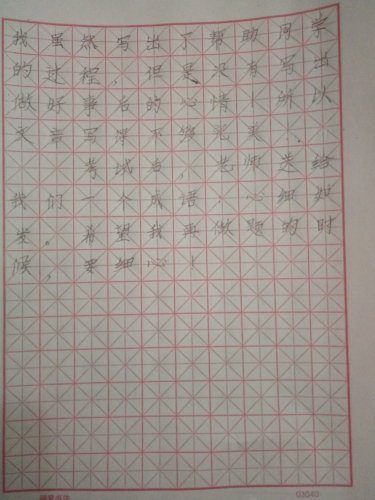 我虽然写出了帮助同学
的过程，但是没有写出
做好事后的心情！所以
文章写得不够完美！
考试后，老师送给
我们一个成语：心细如
发。希望我再做题的时
候，要细心！
02040